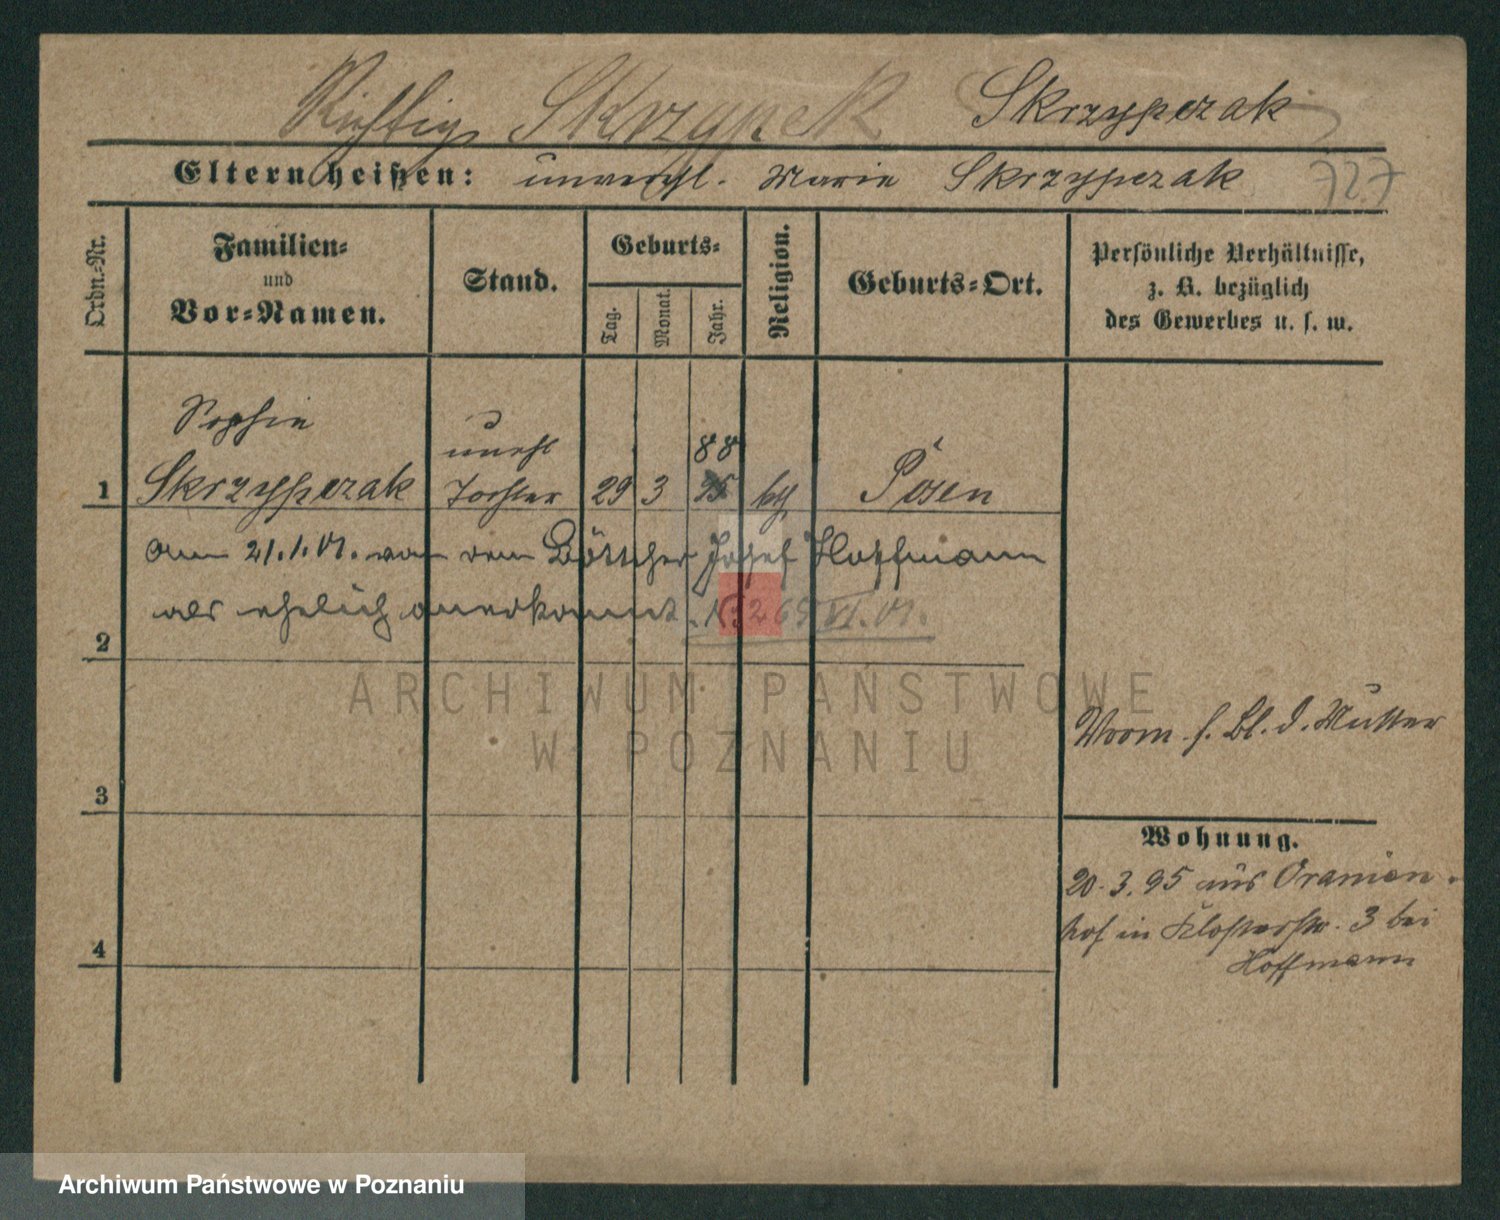 Richtig Skrzypek Skrzypczak
Eltern heißen: unverehl. Marie Skrzypczak 727
Ordn.-Nr.
Familien- und Vor-Namen.
Stand.
Geburts-
Tag. Monat. Jahr.
Religion.
Geburts-Ort.
Persönliche Verhältnisse,
z. B. bezüglich
des Gewerbes u. s. w.
Sophie
unehl 88
1 Skrzypczak Tochter 29 3 kth Posen
Am 21.1.01. von dem Böttcher Josef Hoffmann
als ehelich anerkannt. 265 VI.01.
2
ARCHIWUM PAŃSTWOWE
W POZNANIU
Vorm. s. Bl. d. Mutter
3
Wohnung.
20.3.95 aus Oranien-
hof in Klosterstr. 3 bei
Hoffmann
4
Archiwum Państwowe w Poznaniu